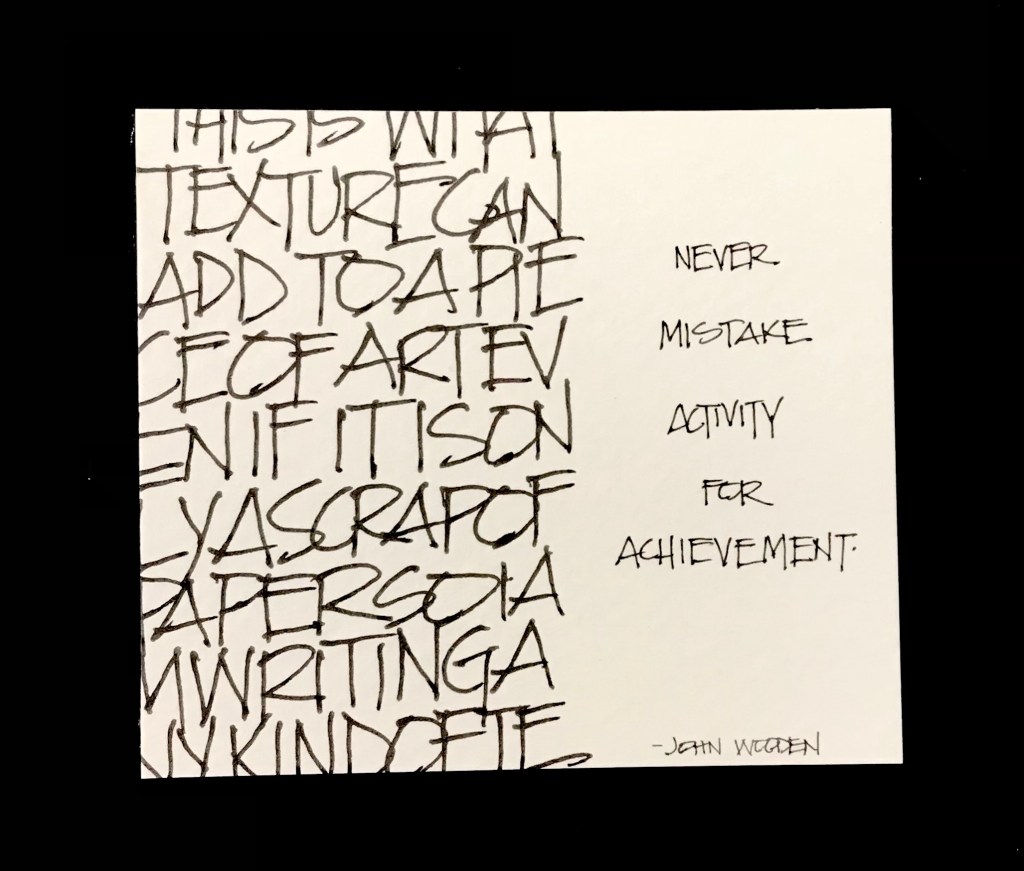 THIS IS WHAT
TEXTURE CAN
ADD TO A PIE
CE OF ART EV
EN IF IT IS ON
LY A SCRAP OF
PAPER SO I A
M WRITING A
NY KIND OF TE
NEVER
MISTAKE
ACTIVITY
FOR
ACHIEVEMENT.
-JOHN WOODEN